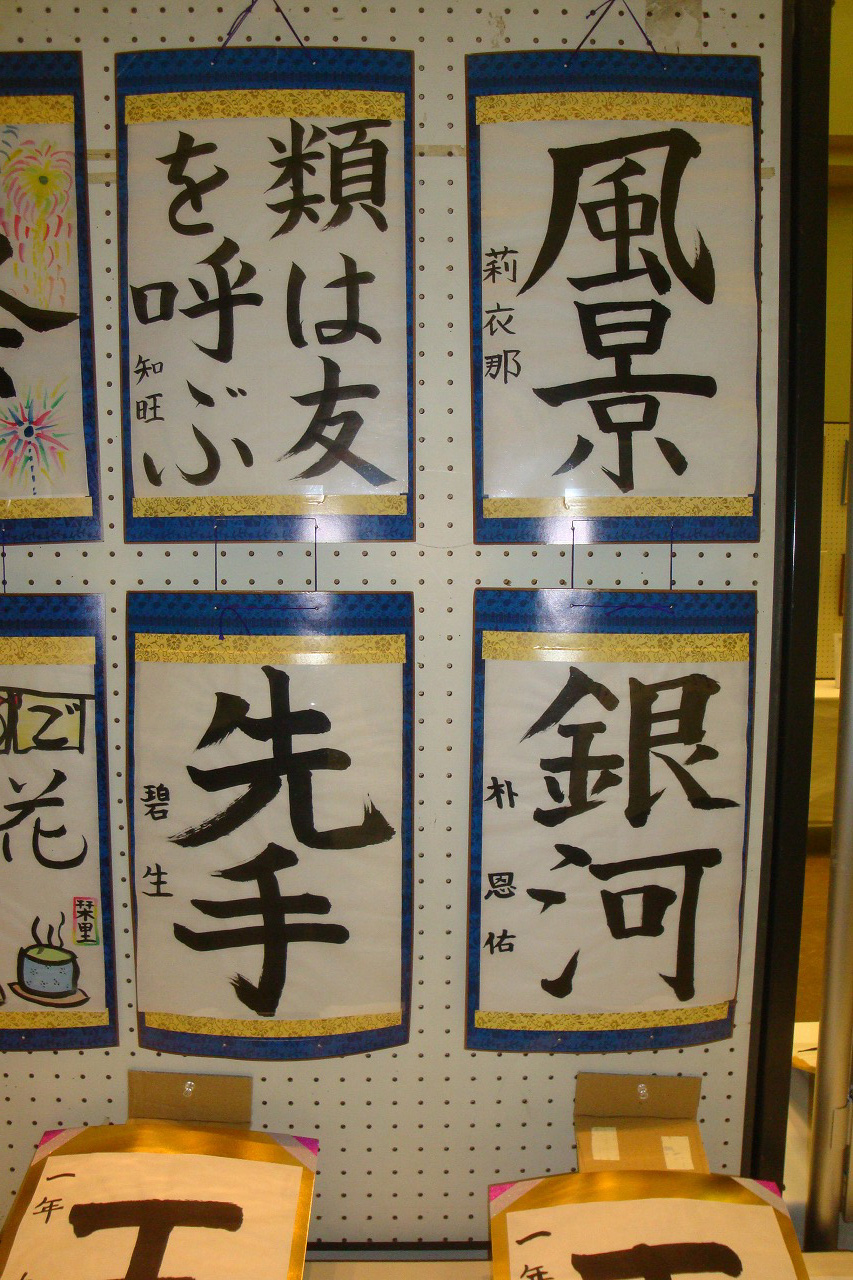 風景
莉衣那
類は友
を呼ぶ
知旺
銀河
朴恩佑
先手
碧生
ご
花
栞里
一年
一年